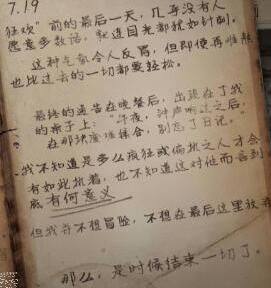 7.19
狂欢”前的最后一天，几乎没有人
愿意多数话，就连目光都犹如针刺。
这种气氛令人反胃，但即便再难熬
也比过去的一切都要轻松。
最终的通告在晚餐后，出现在了我
的桌子上：“午夜，钟声响过之后，
在那块废墟集合，别忘了日记。”
我不知道是多么疯狂或偏执之人才会
有如此执着，也不知道这对他而言到
底有何意义
但我并不想冒险，不想在最后这里放弃
那么，是时候结束一切了。